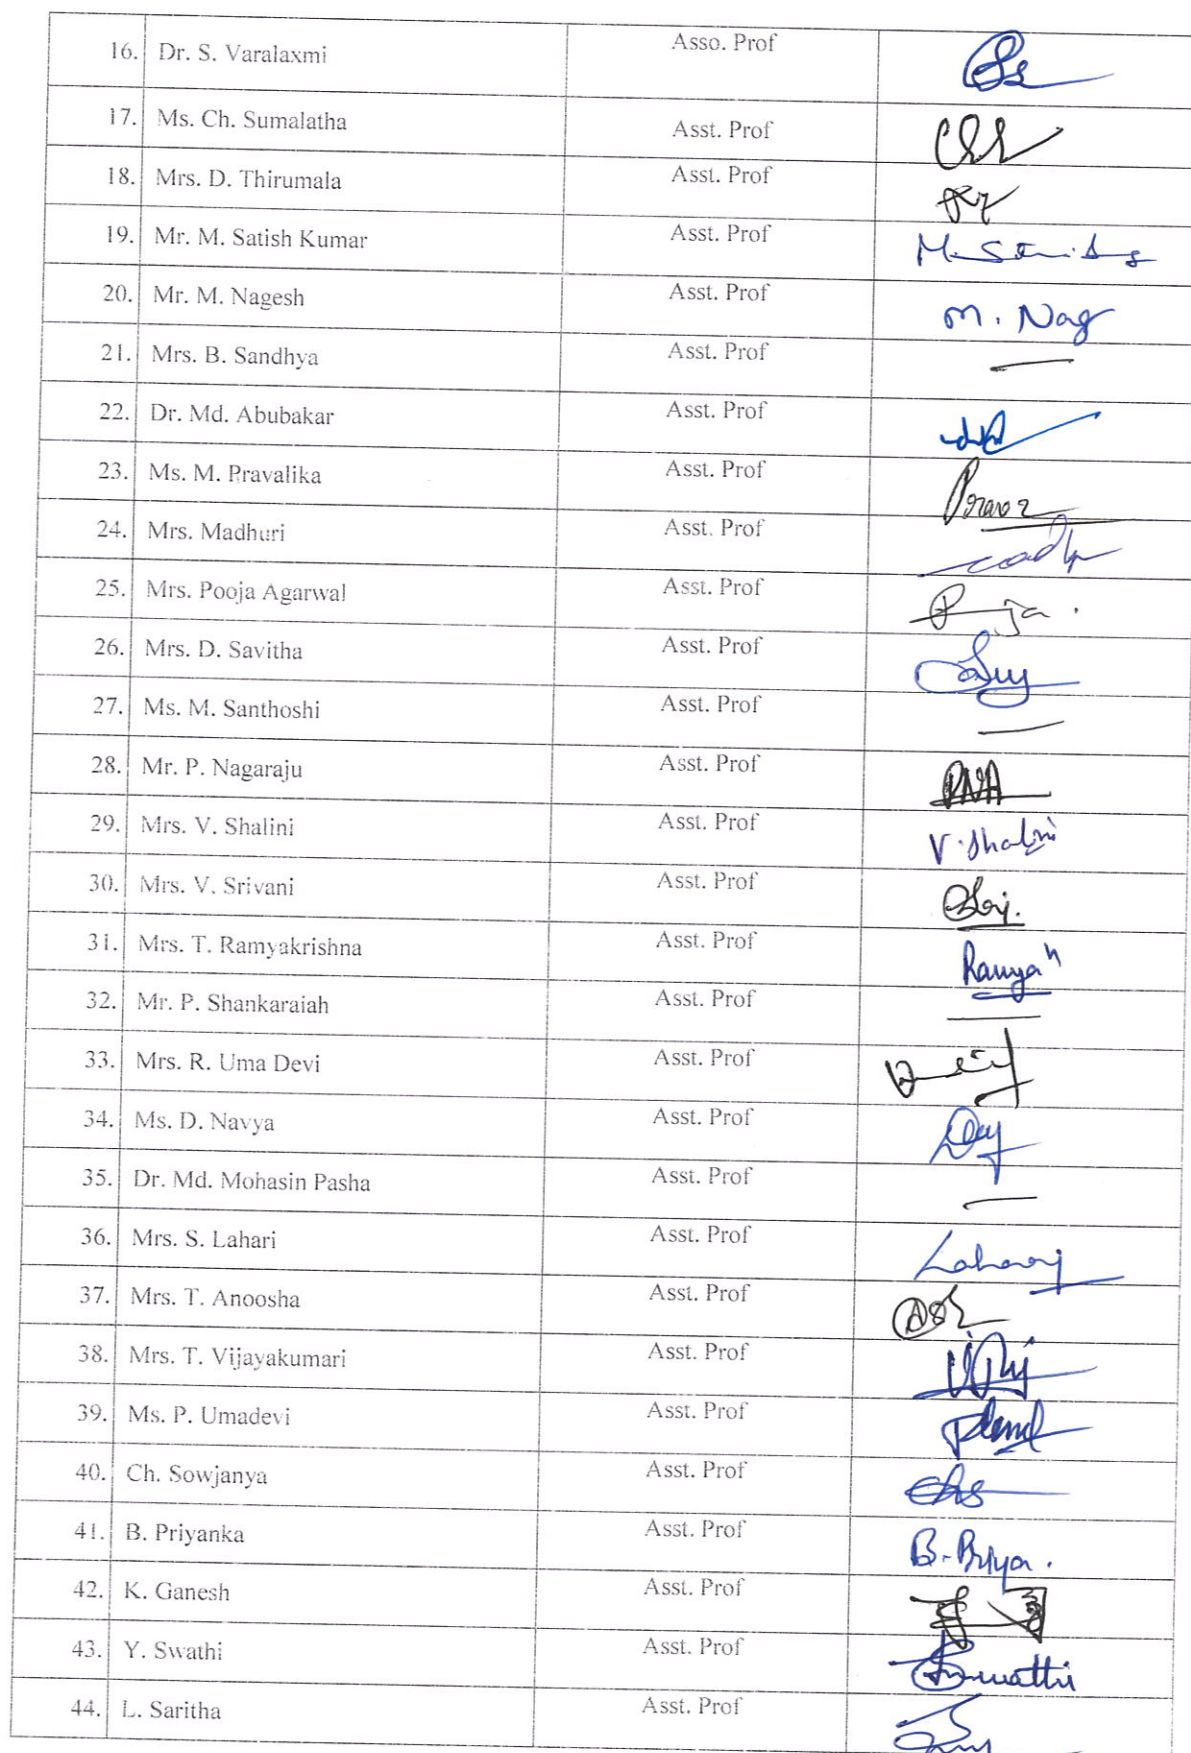 16. Dr. S. Varalaxmi Asso. Prof
17. Ms. Ch. Sumalatha Asst. Prof
18. Mrs. D. Thirumala Asst. Prof
19. Mr. M. Satish Kumar Asst. Prof
20. Mr. M. Nagesh Asst. Prof M. Nag
21. Mrs. B. Sandhya Asst. Prof —
22. Dr. Md. Abubakar Asst. Prof
23. Ms. M. Pravalika Asst. Prof
24. Mrs. Madhuri Asst. Prof
25. Mrs. Pooja Agarwal Asst. Prof
26. Mrs. D. Savitha Asst. Prof
27. Ms. M. Santhoshi Asst. Prof —
28. Mr. P. Nagaraju Asst. Prof
29. Mrs. V. Shalini Asst. Prof V. Shalini
30. Mrs. V. Srivani Asst. Prof
31. Mrs. T. Ramyakrishna Asst. Prof
32. Mr. P. Shankaraiah Asst. Prof —
33. Mrs. R. Uma Devi Asst. Prof
34. Ms. D. Navya Asst. Prof
35. Dr. Md. Mohasin Pasha Asst. Prof —
36. Mrs. S. Lahari Asst. Prof Lahari
37. Mrs. T. Anoosha Asst. Prof
38. Mrs. T. Vijayakumari Asst. Prof
39. Ms. P. Umadevi Asst. Prof
40. Ch. Sowjanya Asst. Prof
41. B. Priyanka Asst. Prof B. Priya.
42. K. Ganesh Asst. Prof
43. Y. Swathi Asst. Prof Swathi
44. L. Saritha Asst. Prof